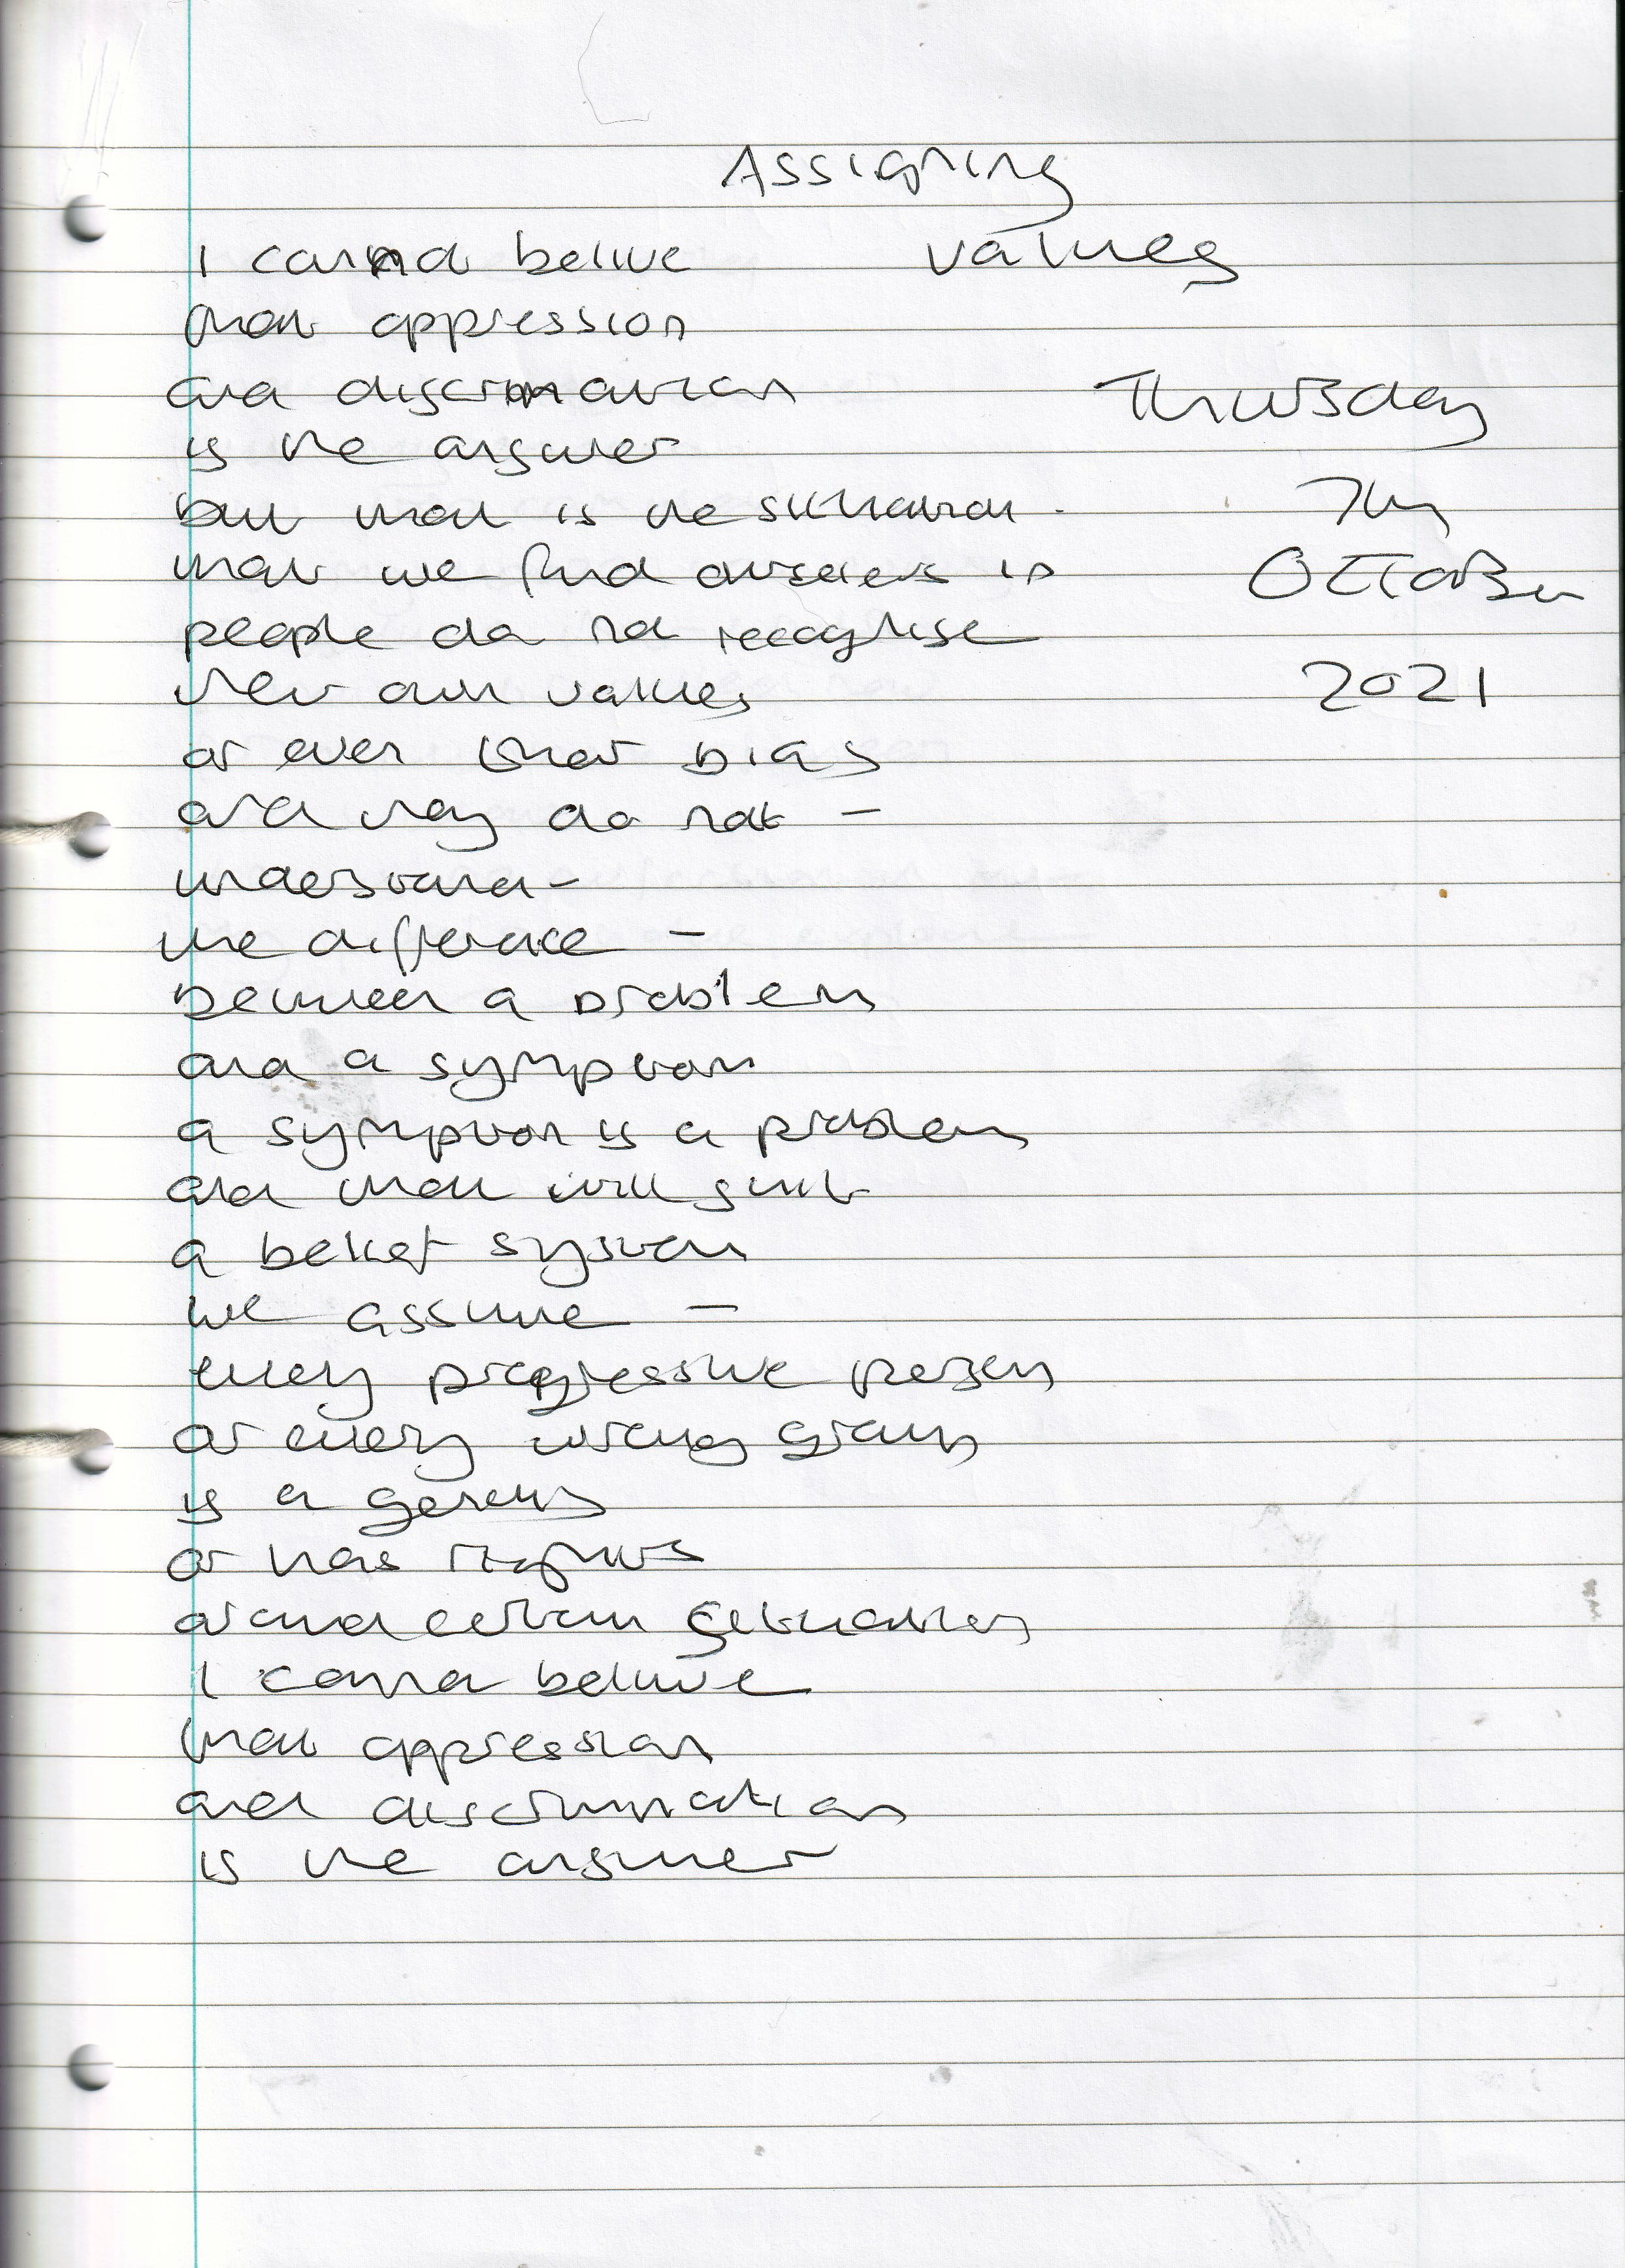 Assigning
values
Thursday
7th
October
2021
I cannot belive
that oppression
and discrimination
is the answer
but that is the situation
that we find ourselves in
people do not recognise
their own values
or even their bias
and they do not -
understand -
the difference -
between a problem
and a symptom
a symptom is a problem
and that will suit
a belief system
we assume -
every progressive person
or every wrong group
is a genius
or has rights
around certain
I cannot belive
that oppression
and discrimination
is the answer